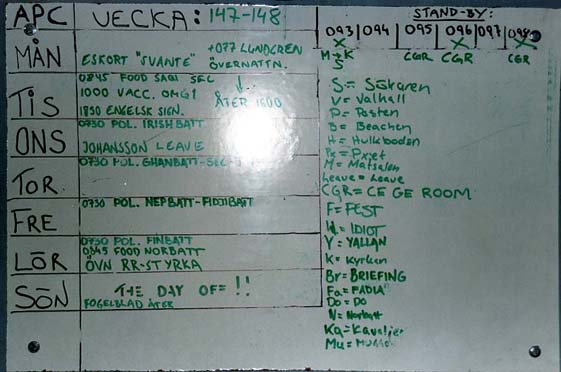 APC VECKA: 147-148
MÅN ESKORT "SVANTE" +077 LUNDGREN ÖVERNATTN.
TIS 0845 FOOD SAGI SEC
1000 VACC. OMG1
1830 ENGELSK SIGN. ÅTER 1600
ONS 0730 POL. IRISHBATT
JOHANSSON LEAVE
TOR 0730 POL. GHANBATT-SEC
FRE 0730 POL. NEPBATT-FIDJIBATT
LÖR 0730 POL. FINBATT
0845 FOOD NORBATT
ÖVN RR-STYRKA
SÖN THE DAY OF= !!
FOGELBLAD ÅTER
STAND-BY:
093 094 095 096 097 098
X X X
M=K CGR CGR CGR
S
S= Sökaren
V= Valhall
P= Posten
B= Beachen
H= Hulkboden
M= Matsalen
Leave= Leave
CGR= CE GE ROOM
F= FEST
Id= IDIOT
Y= YALLAN
K= Kyrkan
Br= BRIEFING
Fa= FADIA
Do= DO
N= Norbatt
Ka= Kavaljer
Mu=